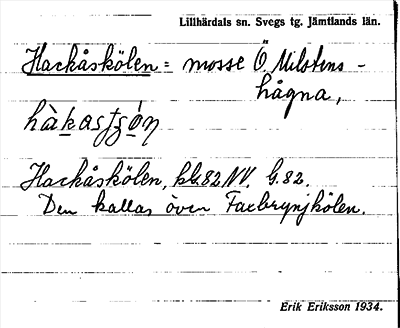 Lillhärdals sn. Svegs tg. Jämtlands län.
Hackåskölen = mosse Ö Nilstens-
hågna,
Hackåskölen, kbl. 82 NV. G. 82.
Den kallas även Faxbrynjkölen.
Erik Eriksson 1934.